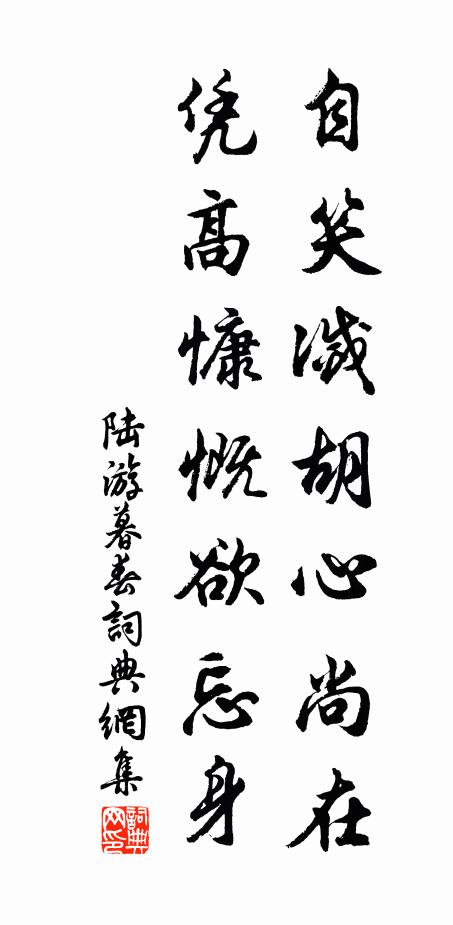 自笑滅胡心尚在
凭高慷慨欲忘身
陆游暮春詞典網集
詞典网印